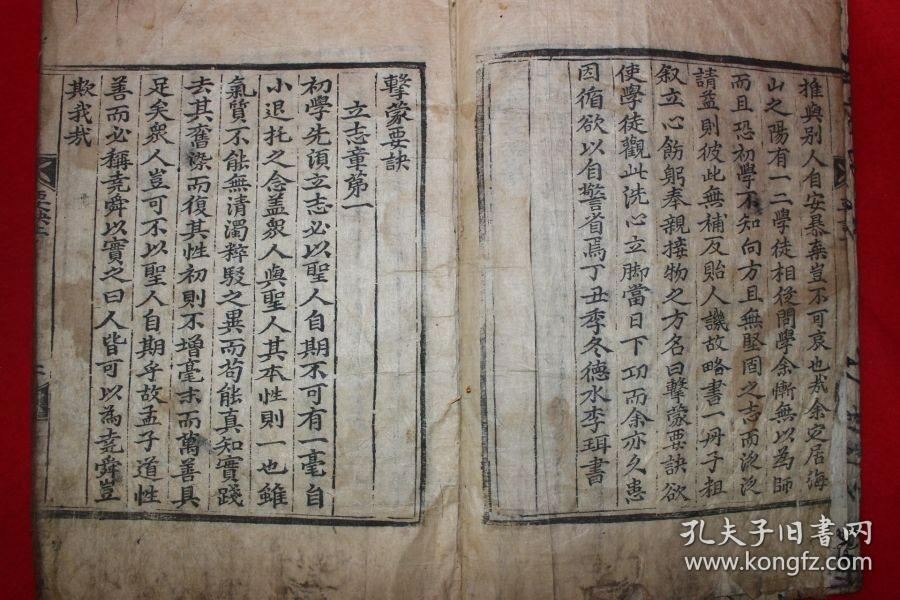 推與別人自安暴棄豈不可哀也哉余定居海
山之陽有一二學徒相從問學余慚無以為師
而且恐初學不知向方且無堅固之志而泛泛
請益則彼此無補反貽人譏故略書一冊子粗
叙立心飭躬奉親接物之方名曰擊蒙要訣欲
使學徒觀此洗心立脚當日下功而余亦久患
因循欲以自警省焉丁丑季冬德水李珥書
擊蒙要訣
立志章第一
初學先須立志必以聖人自期不可有一毫自
小退托之念盖衆人與聖人其本性則一也雖
氣質不能無清濁粹駁之異而苟能真知實踐
去其舊染而復其性初則不增毫末而萬善具
足矣衆人豈可不以聖人自期乎故孟子道性
善而必稱堯舜以實之曰人皆可以為堯舜豈
欺我哉
孔夫子旧书网
www.kongfz.com